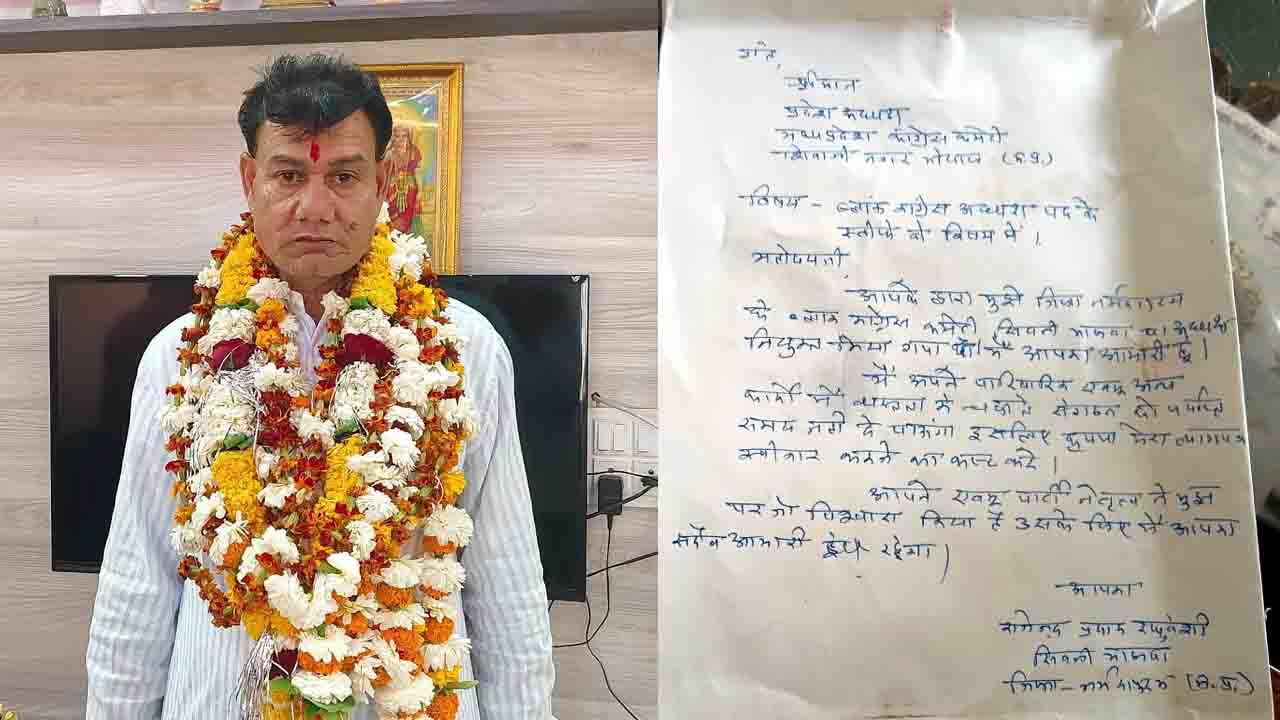 प्रति,
श्रीमान
प्रदेश अध्यक्ष
मध्यप्रदेश कांग्रेस कमेटी
शिवाजी नगर भोपाल (म.प्र.)
विषय - ब्लॉक कांग्रेस अध्यक्ष पद के
स्तीफे के विषय में।
महोदयजी,
आपके द्वारा मुझे जिला नर्मदापुरम
के ब्लाक कांग्रेस कमेटी सिवनी मालवा का अध्यक्ष
नियुक्त किया गया मैं आपका आभारी हूँ।
मैं अपने पारिवारिक एवम् अन्य
कार्यो में व्यस्तता के चलते संगठन को पर्याप्त
समय नही दे पाऊंगा इसलिए कृपया मेरा त्यागपत्र
स्वीकार करने का कष्ट करे।
आपने एवम् पार्टी नेतृत्व ने मुझ
पर जो विश्वास किया है उसके लिए मैं आपका
सदैव आभारी रहेगा।
आपका
प्रसाद रघुवंशी
सिवनी मालवा
जिला - नर्मदापुरम (म.प्र.)